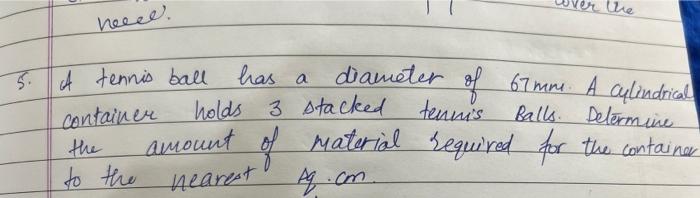 cover the
need.
5. A tennis ball has a diameter of 67mm. A cylindrical
container holds 3 stacked tennis Balls. Determine
the amount of material required for the container
to the nearest sq. cm.